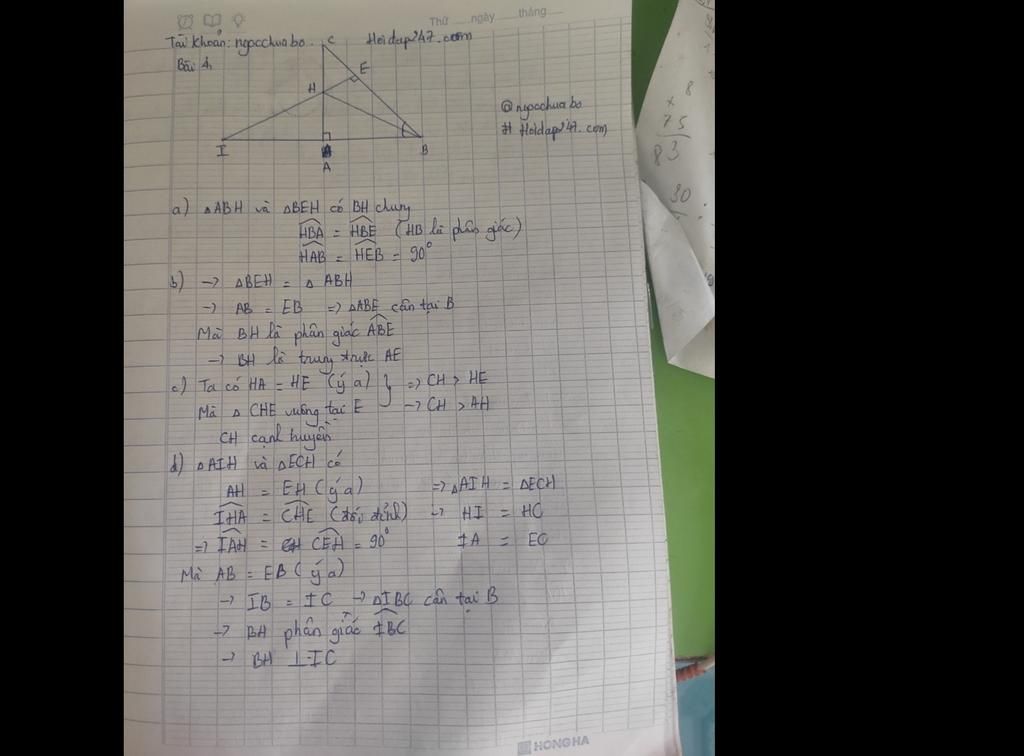 Thứ ngày tháng
Tài khoản: ngocchuabo. Hoidap247.com
Bài 4.
C
E
H
I
A
B
@ngocchuabo
# Hoidap247.com
8
x
75
83
30
a) △ABH và △BEH có BH chung
HBA = HBE (HB là phân giác)
HAB = HEB = 90°
b) → △BEH = △ ABH
→ AB = EB => △ABE cân tại B
Mà BH là phân giác ABE
→ BH là trung trực AE
c) Ta có HA = HE (ý a) } => CH > HE
Mà △ CHE vuông tại E → CH > AH
CH cạnh huyền
d) △AIH và △ECH có
AH = EH (ý a) => △AIH = △ECH
IHA = CHE (đối đỉnh) → HI = HC
=> IAH = CEH = 90° IA = EC
Mà AB = EB (ý a)
→ IB = IC → △IBC cân tại B
→ BH phân giác IBC
→ BH ⊥ IC
HONG HA